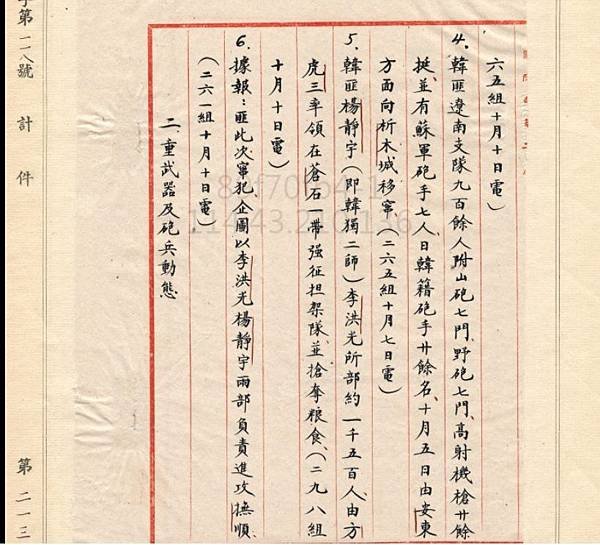 六五組十月十日電）
4.韓匪遼南支隊九百餘人附山砲七門、野砲七門、高射機槍廿餘
挺、並有蘇軍砲手七人、日韓籍砲手廿餘名、十月五日由安東
方面向析木城移竄（二六五組十月七日電）
5.韓匪楊靜宇（即韓獨二師）李洪光所部約一千五百人、由方
虎三率領在蒼石一帶强征担架隊、並搶奪粮食、（二九八組
十月十日電）
6.據報：匪此次竄犯、企圖以李洪光楊靜宇兩部負責進攻撫順、
（二六一組十月十日電）
二、重武器及砲兵動態
字第一二八號 計 件
第二一三